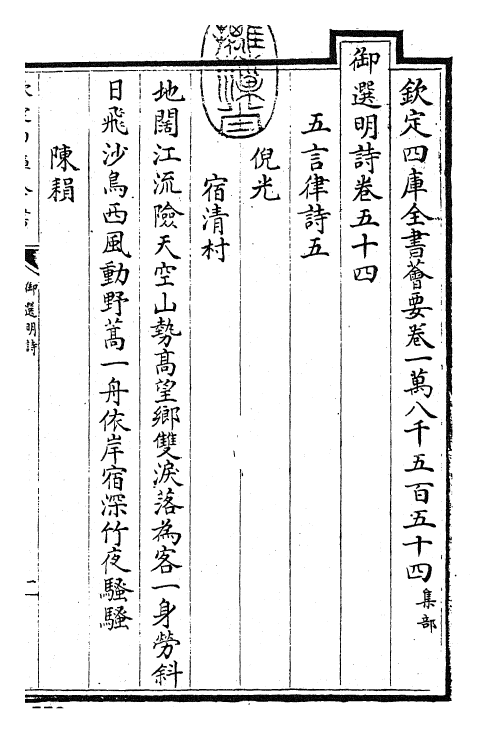 欽定四庫全書薈要卷一萬八千五百五十四集部
御選明詩卷五十四
五言律詩五
倪光
宿清村
地闊江流險天空山勢高望鄉雙淚落為客一身勞斜
日飛沙鳥西風動野蒿一舟依岸宿深竹夜騷騷
陳頛
御選明詩